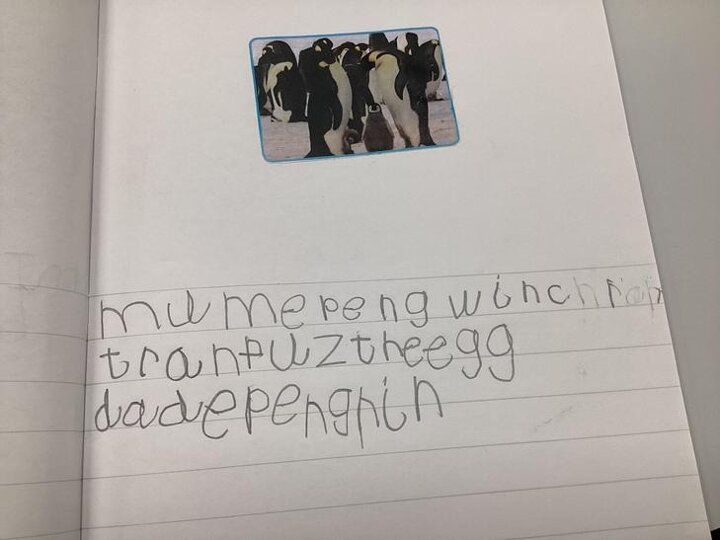 mumepeng winc
tranfuztheegg
dadepengnin